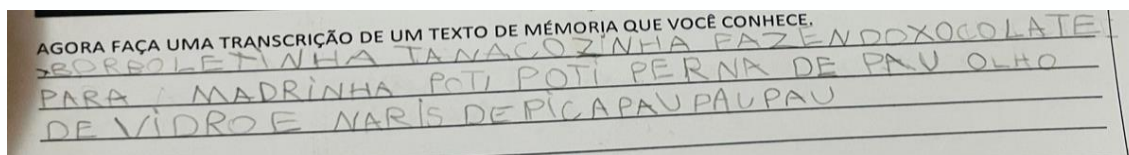 AGORA FAÇA UMA TRANSCRIÇÃO DE UM TEXTO DE MÉMORIA QUE VOCÊ CONHECE.
BORBOLETINHA TANACOZINHA FAZENDOXOCOLATE
PARA MADRINHA POTI POTI PERNA DE PAU OLHO
DE VIDRO E NARIS DE PICAPAUPAUPAU